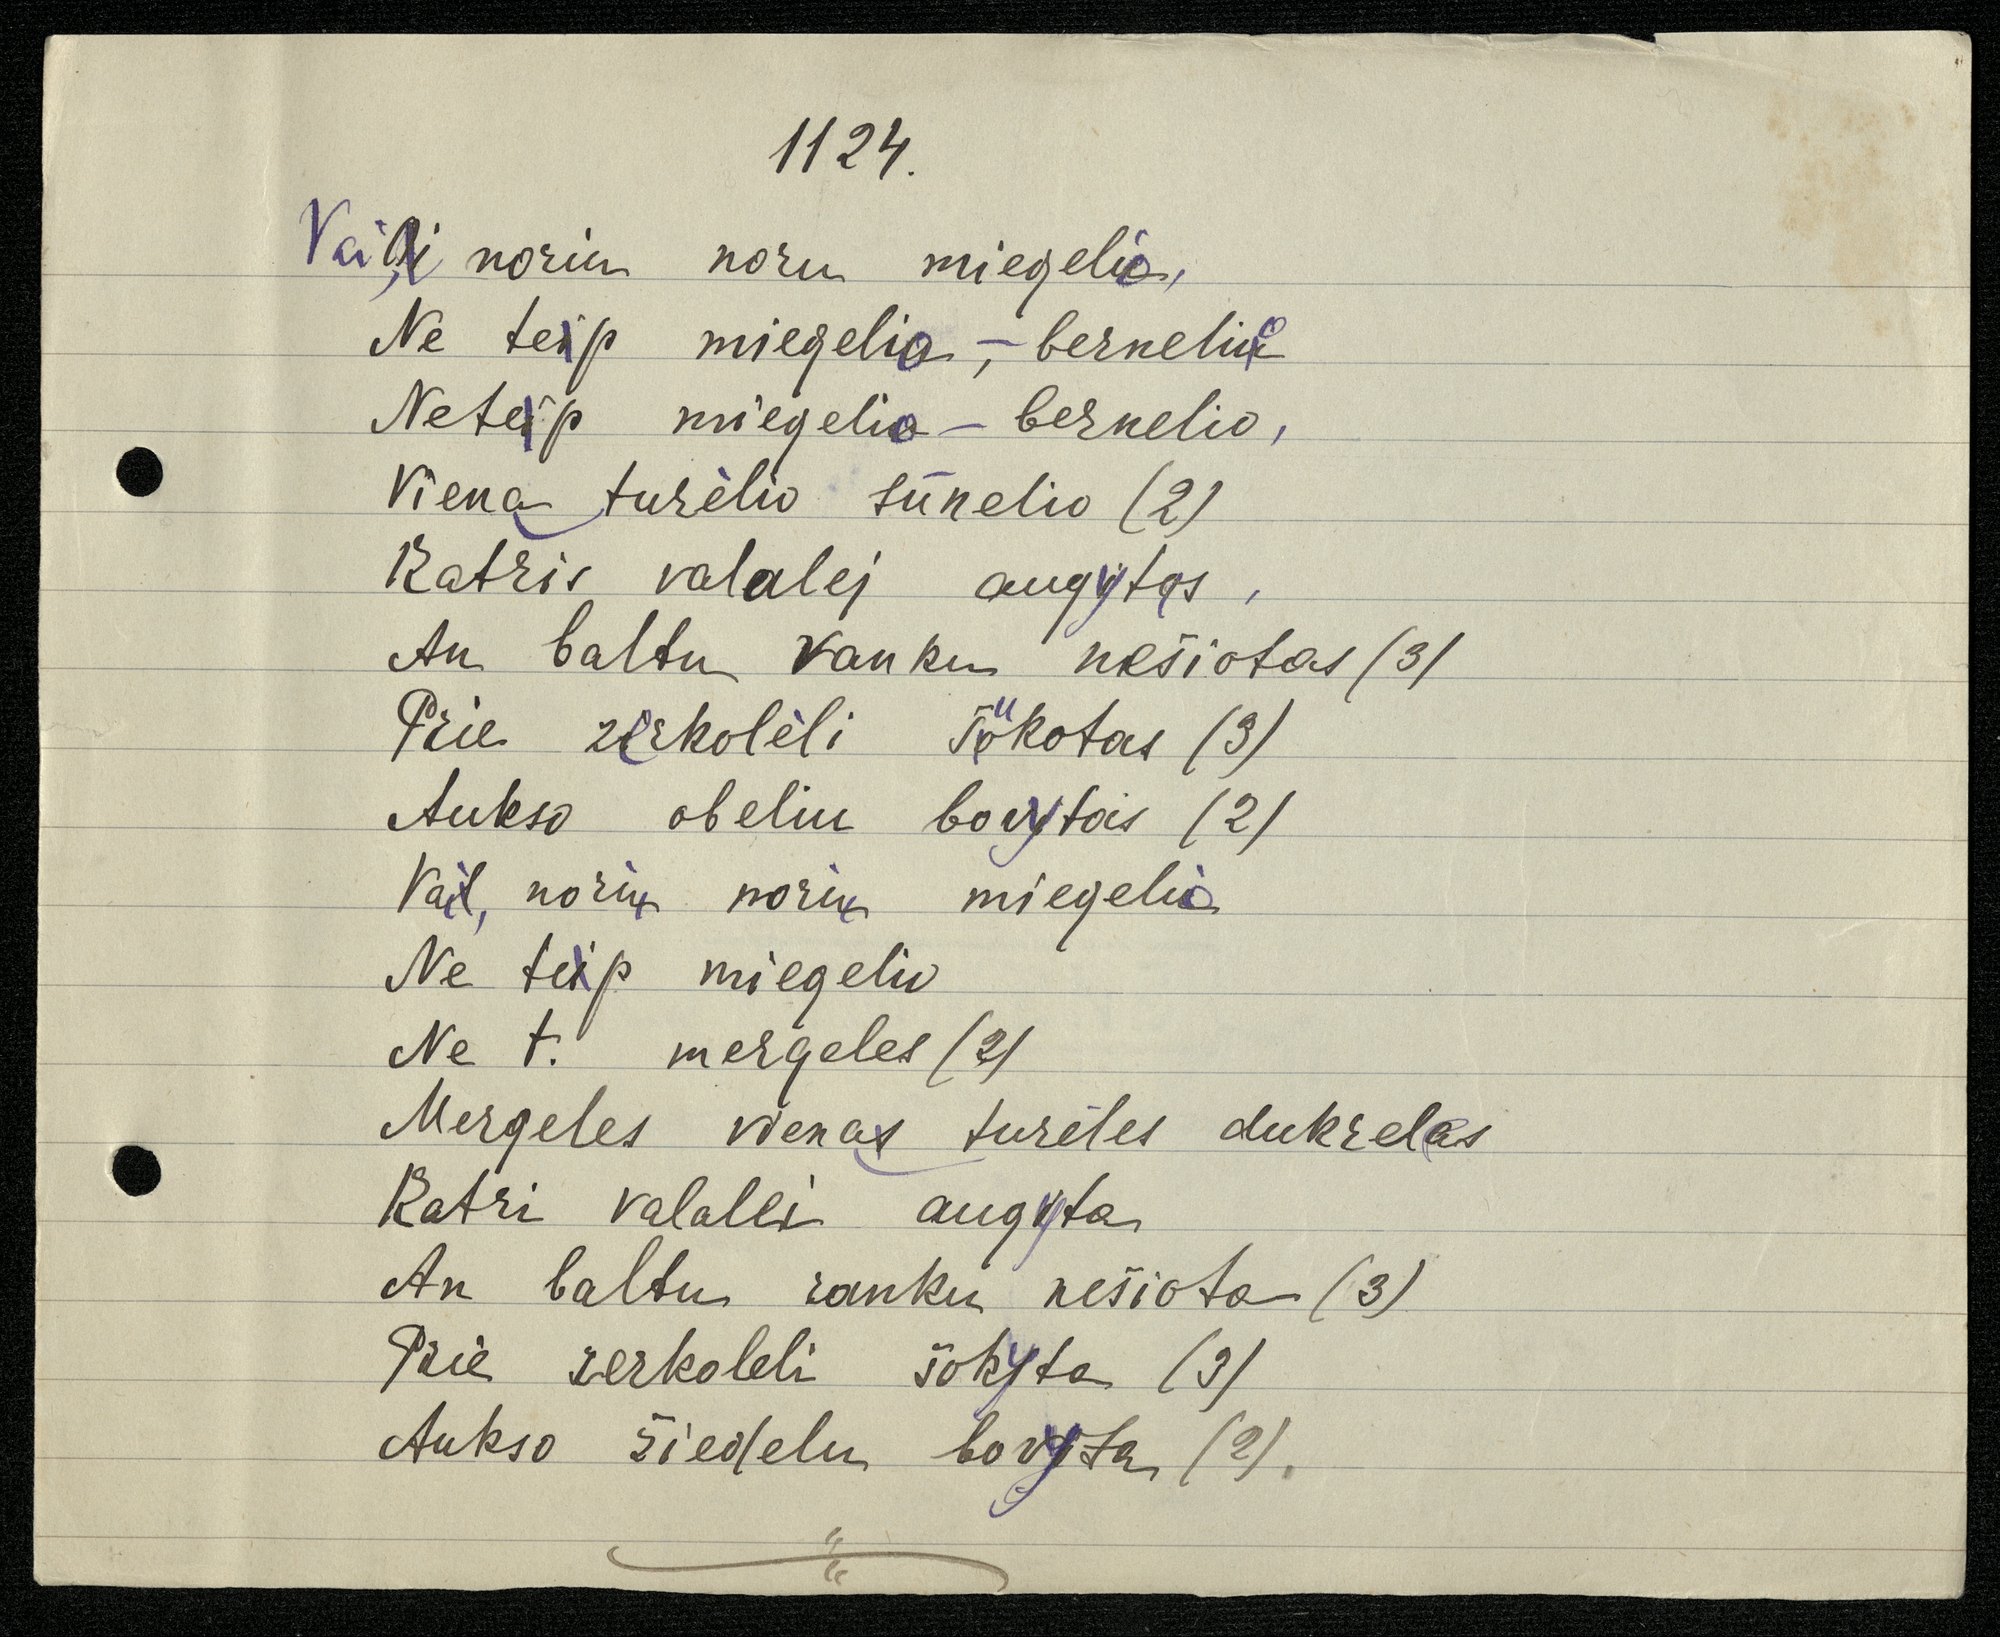 1124.
Vai, noriu noru miegelio,
Ne teip miegelio, – bernelio
Neteip miegelio – bernelio,
Viena turėlio sūnelio (2)
Katris valalej augytas,
An baltu ranku nešiotas (3)
Prie zerkolėli šūkotas (3)
Aukso obeliu bovytas (2)
Vai, noriu noriu miegelio
Ne teip miegelio
Ne t. mergeles (2)
Mergeles vienas turėles dukreles
Katri valallei augyta
An baltu ranku nešiota (3)
Prie zerkoleli šokyta (3)
Aukso žiedelu bovyta (2).